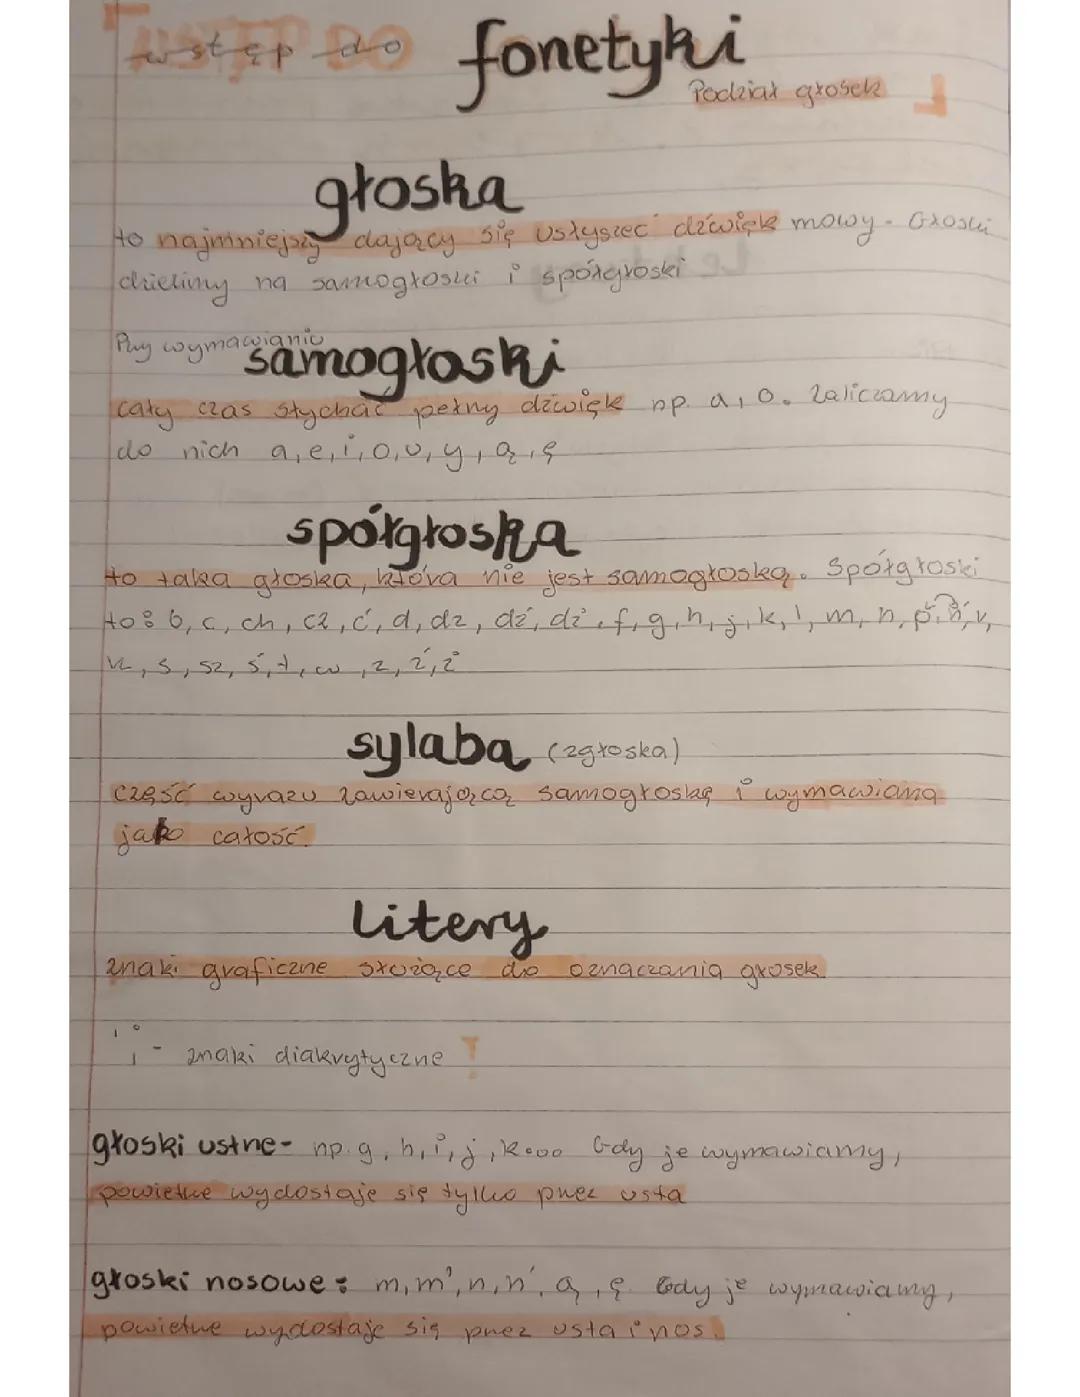 wstęp do fonetyki
Podział głosek
głoska
to najmniejszy dający się usłyszeć dźwięk mowy. Głoski
dzielimy na samogłoski i spółgłoski
Przy wymawianiu
samogłoski
cały czas słychać pełny dźwięk np. a, o. Zaliczamy
do nich a, e, i, o, u, y, ą, ę
spółgłoska
to taka głoska, która nie jest samogłoską. Spółgłoski
to: b, c, ch, cz, ć, d, dz, dź, dż, f, g, h, j, k, l, m, n, p, ń, r,
rz, s, sz, ś, t, w, z, ź, ż
sylaba (zgłoska)
część wyrazu zawierającą samogłoskę i wymawianą
jako całość.
Litery
znaki graficzne służące do oznaczania głosek.
- znaki diakrytyczne !
głoski ustne- np. g, h, i, j, k... Gdy je wymawiamy,
powietrze wydostaje się tylko przez usta
głoski nosowe: m, m', n, ń, ą, ę. Gdy je wymawiamy,
powietrze wydostaje się przez usta i nos.